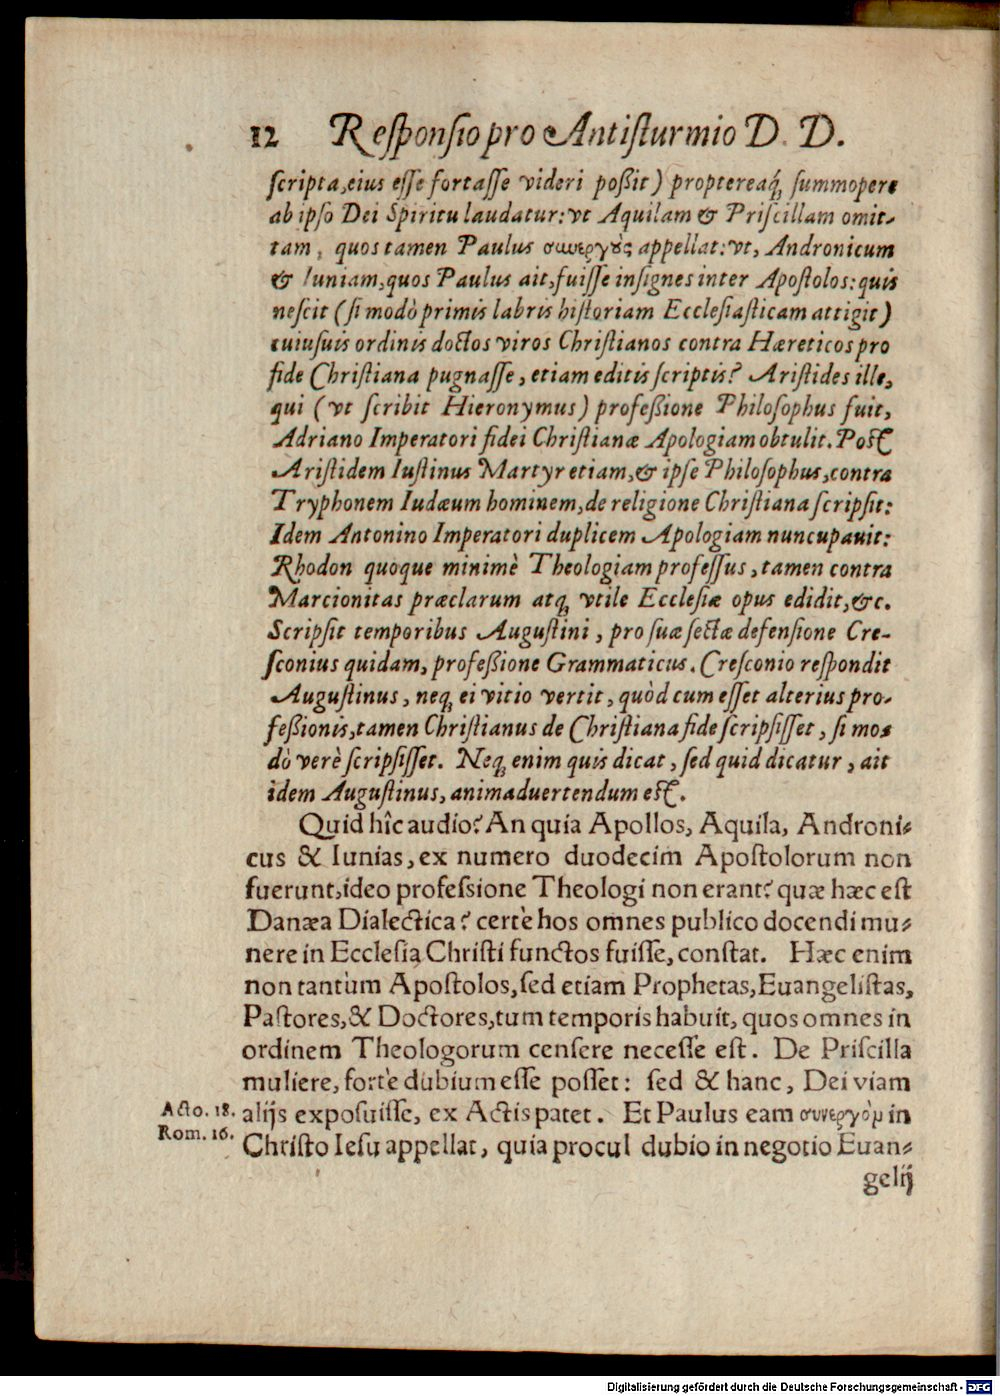 12 Reſponſio pro Antiſturmio D. D.
ſcripta, eius eſſe fortaſſe videri poßit) proptereaq́ꝫ ſummopere
ab ipſo Dei Spiritu laudatur: vt Aquilam & Priſcillam omit-
tam, quos tamen Paulus συνεργοὺς appellat: vt, Andronicum
& Iuniam, quos Paulus ait, fuiſſe inſignes inter Apoſtolos: quis
neſcit (ſi modò primis labris hiſtoriam Eccleſiaſticam attigit)
cuiuſuis ordinis doctos viros Chriſtianos contra Hæreticos pro
fide Chriſtiana pugnaſſe, etiam editis ſcriptis? Ariſtides ille,
qui (vt ſcribit Hieronymus) profeßione Philoſophus fuit,
Adriano Imperatori fidei Chriſtianæ Apologiam obtulit. Poſt
Ariſtidem Iuſtinus Martyr etiam, & ipſe Philoſophus, contra
Tryphonem Iudæum hominem, de religione Chriſtiana ſcripſit:
Idem Antonino Imperatori duplicem Apologiam nuncupauit:
Rhodon quoque minimè Theologiam profeſſus, tamen contra
Marcionitas præclarum atqꝫ vtile Eccleſiæ opus edidit, &c.
Scripſit temporibus Auguſtini, pro ſuæ ſectæ defenſione Cre-
ſconius quidam, profeßione Grammaticus. Creſconio reſpondit
Auguſtinus, neqꝫ ei vitio vertit, quòd cum eſſet alterius pro-
feßionis, tamen Chriſtianus de Chriſtiana fide ſcripſiſſet, ſi mo-
dò verè ſcripſiſſet. Neqꝫ enim quis dicat, ſed quid dicatur, ait
idem Auguſtinus, animaduertendum eſt.
Quid hîc audio? An quia Apollos, Aquila, Androni-
cus & Iunias, ex numero duodecim Apoſtolorum non
fuerunt, ideo profeſsione Theologi non erant? quæ hæc eſt
Danæa Dialectica? certè hos omnes publico docendi mu-
nere in Eccleſia Chriſti functos fuiſſe, conſtat. Hæc enim
non tantùm Apoſtolos, ſed etiam Prophetas, Euangeliſtas,
Paſtores, & Doctores, tum temporis habuit, quos omnes in
ordinem Theologorum cenſere neceſſe eſt. De Priſcilla
muliere, fortè dubium eſſe poſſet: ſed & hanc, Dei viam
alijs expoſuiſſe, ex Actis patet. Et Paulus eam συνεργὸμ in
Chriſto Ieſu appellat, quia procul dubio in negotio Euan-
gelij
Acto. 18.
Rom. 16.
Digitalisierung gefördert durch die Deutsche Forschungsgemeinschaft - DFG